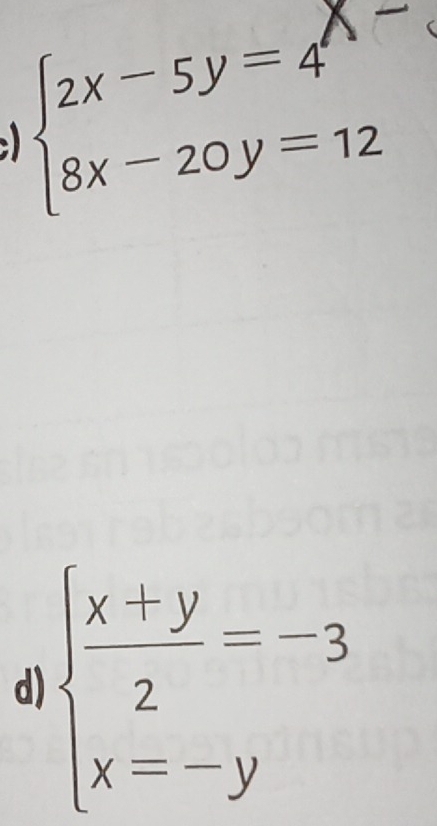 x -
c) 2x - 5y = 4
8x - 20y = 12
d) x + y
2
= -3
x = -y